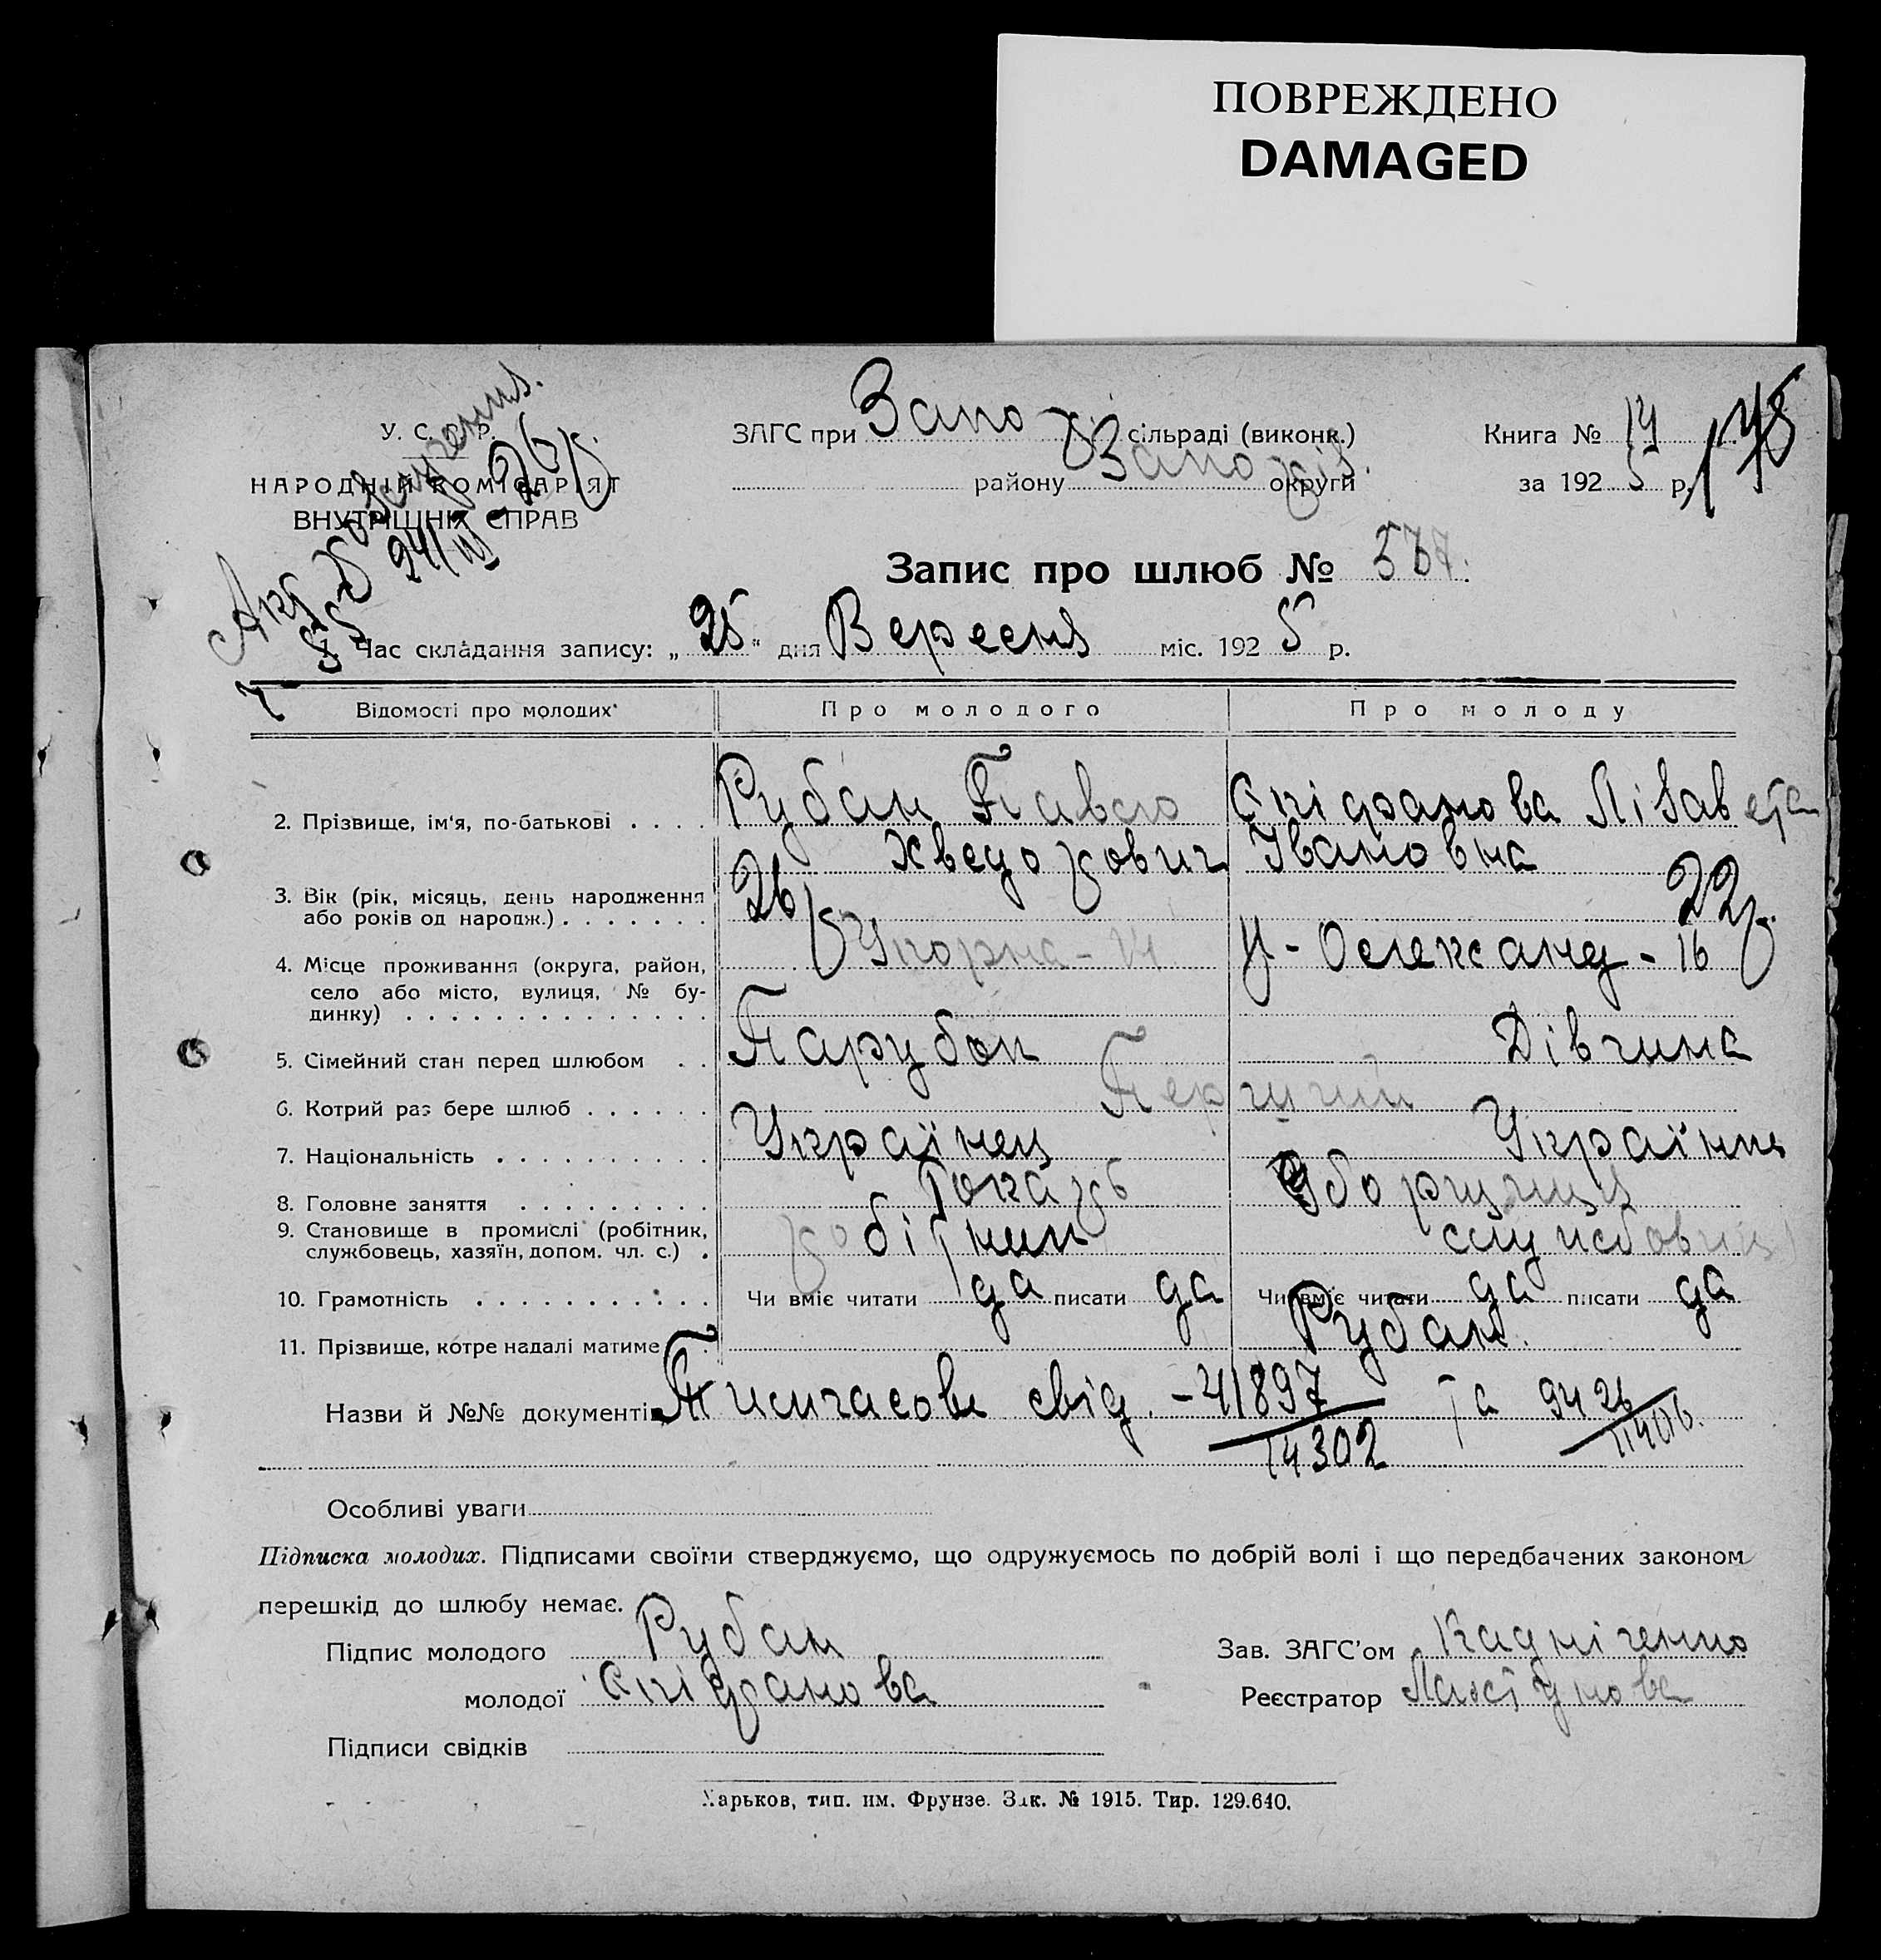 ПОВРЕЖДЕНО
DAMAGED
У. С. Р. Р.
НАРОДНІЙ КОМІСАРІЯТ
ВНУТРІШНІХ СПРАВ
ЗАГС при Запо сільраді (виконк.)
району Запоріз. округи
Книга № 14
за 1925 р.
178
Запис про шлюб № 567.
Час складання запису: „25“ дня Вересня міс. 1925 р.
Відомості про молодих Про молодого Про молоду
2. Прізвище, ім‘я, по-батькові . . . . Рубан Павло Хведорович Єпіфанова Лізавета Івановна
3. Вік (рік, місяць, день народження
або років од народж.) . . . . . . . 26 р 22 р.
4. Місце проживання (округа, район,
село або місто, вулиця, № бу-
динку) . . . . . . . . . . . . . . Упорна - 14 У - Олександ - 16
5. Сімейний стан перед шлюбом . . Парубок Дівчина
6. Котрий раз бере шлюб . . . . . . Перший
7. Національність . . . . . . . . . . Українец Українк
8. Головне заняття . . . . . . . . . Токарь Уборщиця
9. Становище в промислі (робітник,
службовець, хазяїн, допом. чл. с.) . робітник службовиц
10. Грамотність . . . . . . . . . . . Чи вміє читати да писати да Чи вміє читати да писати да
11. Прізвище, котре надалі матиме Рубан.
Назви й №№ документів Тимчасове свід. - 41897 / 14302 та 9426 / 11406.
Особливі уваги
Підписка молодих. Підписами своїми стверджуємо, що одружуємось по добрій волі і що передбачених законом
перешкід до шлюбу немає.
Підпис молодого Рубан
молодої Єпіфанова
Підписи свідків
Зав. ЗАГС’ом Кадніченко
Реєстратор
Харьков, тип. им. Фрунзе. Зак. № 1915. Тир. 129.640.